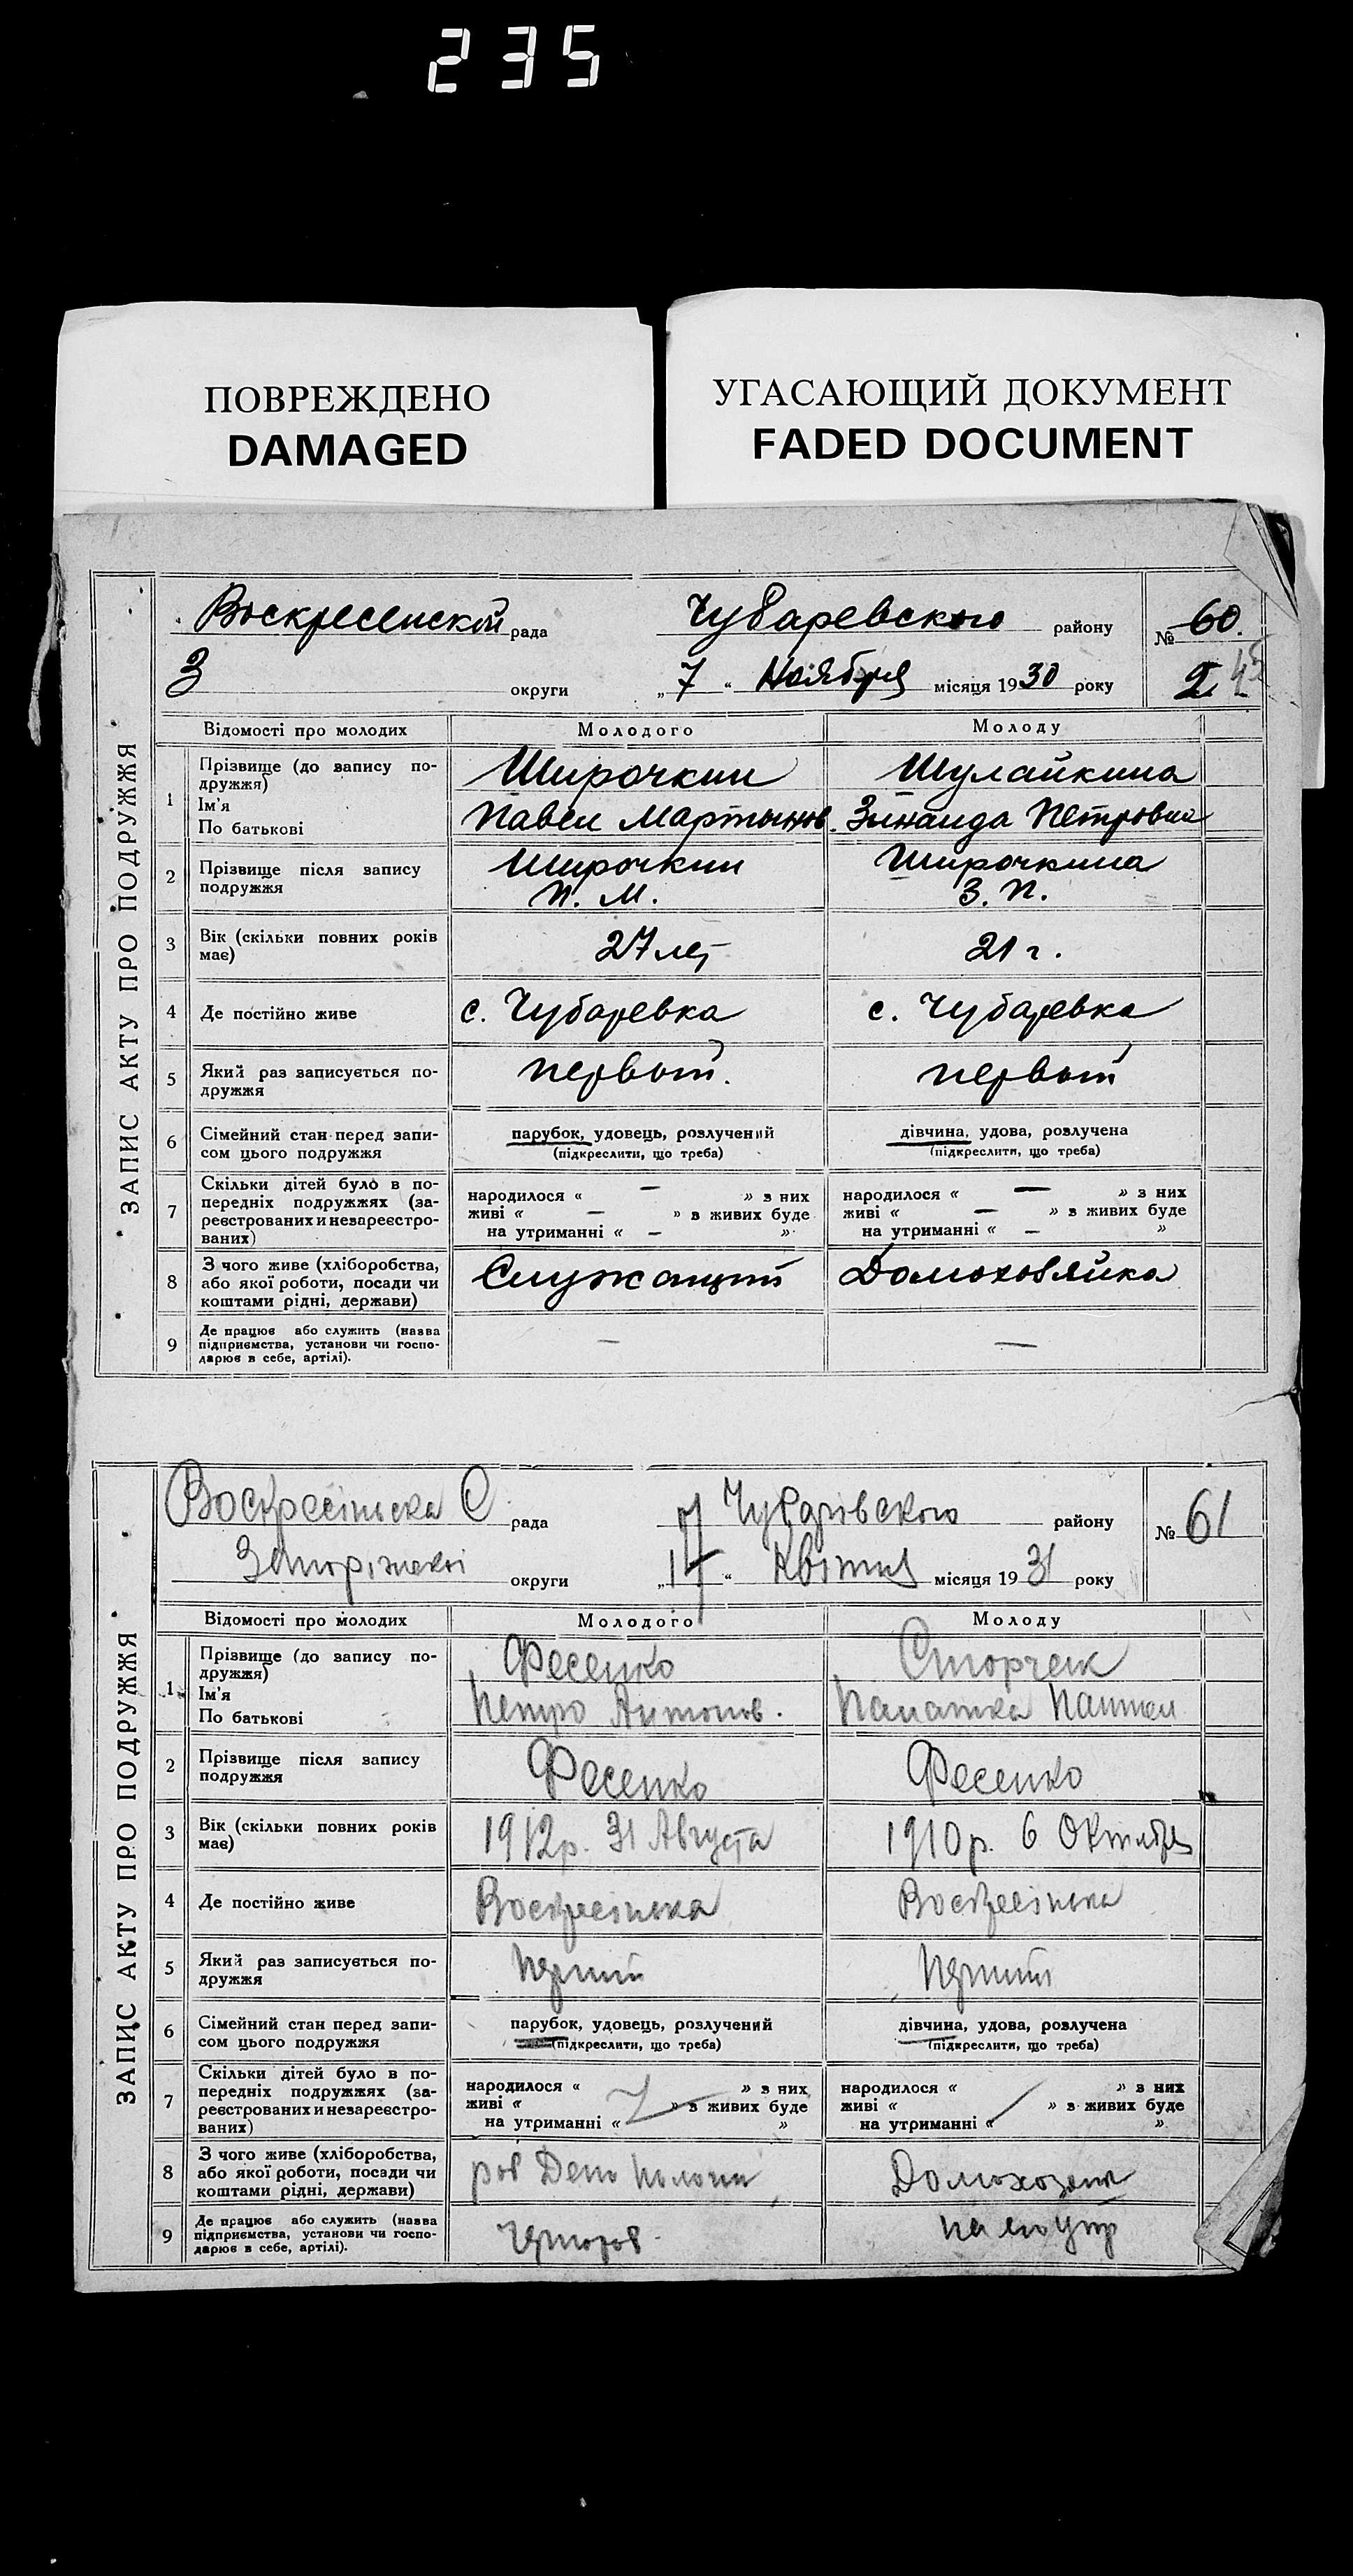 235
ПОВРЕЖДЕНО
DAMAGED
УГАСАЮЩИЙ ДОКУМЕНТ
FADED DOCUMENT
ЗАПИС АКТУ ПРО ПОДРУЖЖЯ
Воскресенской рада Чубаревского району № 60.
З округи „7“ Ноября місяця 1930 року 2
Відомості про молодих Молодого Молоду
1 Прізвище (до запису по-
дружжя) Широчкин Шулайкина
Ім'я
По батькові Павел Мартынов. Зинаида Петровна
2 Прізвище після запису
подружжя Широчкин Широчкина
П. М. З. П.
3 Вік (скільки повних років
має) 27 лет 21 г.
4 Де постійно живе с. Чубаревка с. Чубаревка
5 Який раз записується по-
дружжя первый. первый
6 Сімейний стан перед запи-
сом цього подружжя
парубок, удовець, розлучений дівчина, удова, розлучена
(підкреслити, що треба) (підкреслити, що треба)
7 Скільки дітей було в по-
передніх подружжях (за-
реєстрованих и незареєстро-
ваних)
народилося « — » з них народилося « — » з них
живі « — » з живих буде живі « — » з живих буде
на утриманні « — » на утриманні « — »
8 З чого живе (хліборобства,
або якої роботи, посади чи
коштами рідні, держави) Служащий Домохозяйка
9 Де працює або служить (назва
підприємства, установи чи госпо-
дарює в себе, артілі). — —
ЗАПИС АКТУ ПРО ПОДРУЖЖЯ
Воскресінська С рада Чубарівского району № 61
Запоріжскої округи „17“ Квітня місяця 1931 року
Відомості про молодих Молодого Молоду
1 Прізвище (до запису по-
дружжя) Фесенко Сторчак
Ім'я
По батькові Петро Антонов.
2 Прізвище після запису
подружжя Фесенко Фесенко
3 Вік (скільки повних років
має) 1912р. 31 Августа 1910р. 6 Октября
4 Де постійно живе Воскресінка Воскресінка
5 Який раз записується по-
дружжя перший перший
6 Сімейний стан перед запи-
сом цього подружжя
парубок, удовець, розлучений дівчина, удова, розлучена
(підкреслити, що треба) (підкреслити, що треба)
7 Скільки дітей було в по-
передніх подружжях (за-
реєстрованих и незареєстро-
ваних)
народилося « » з них народилося « » з них
живі « » з живих буде живі « » з живих буде
на утриманні « » на утриманні « »
8 З чого живе (хліборобства,
або якої роботи, посади чи
коштами рідні, держави) роб Депо Пологи
9 Де працює або служить (назва
підприємства, установи чи госпо-
дарює в себе, артілі).